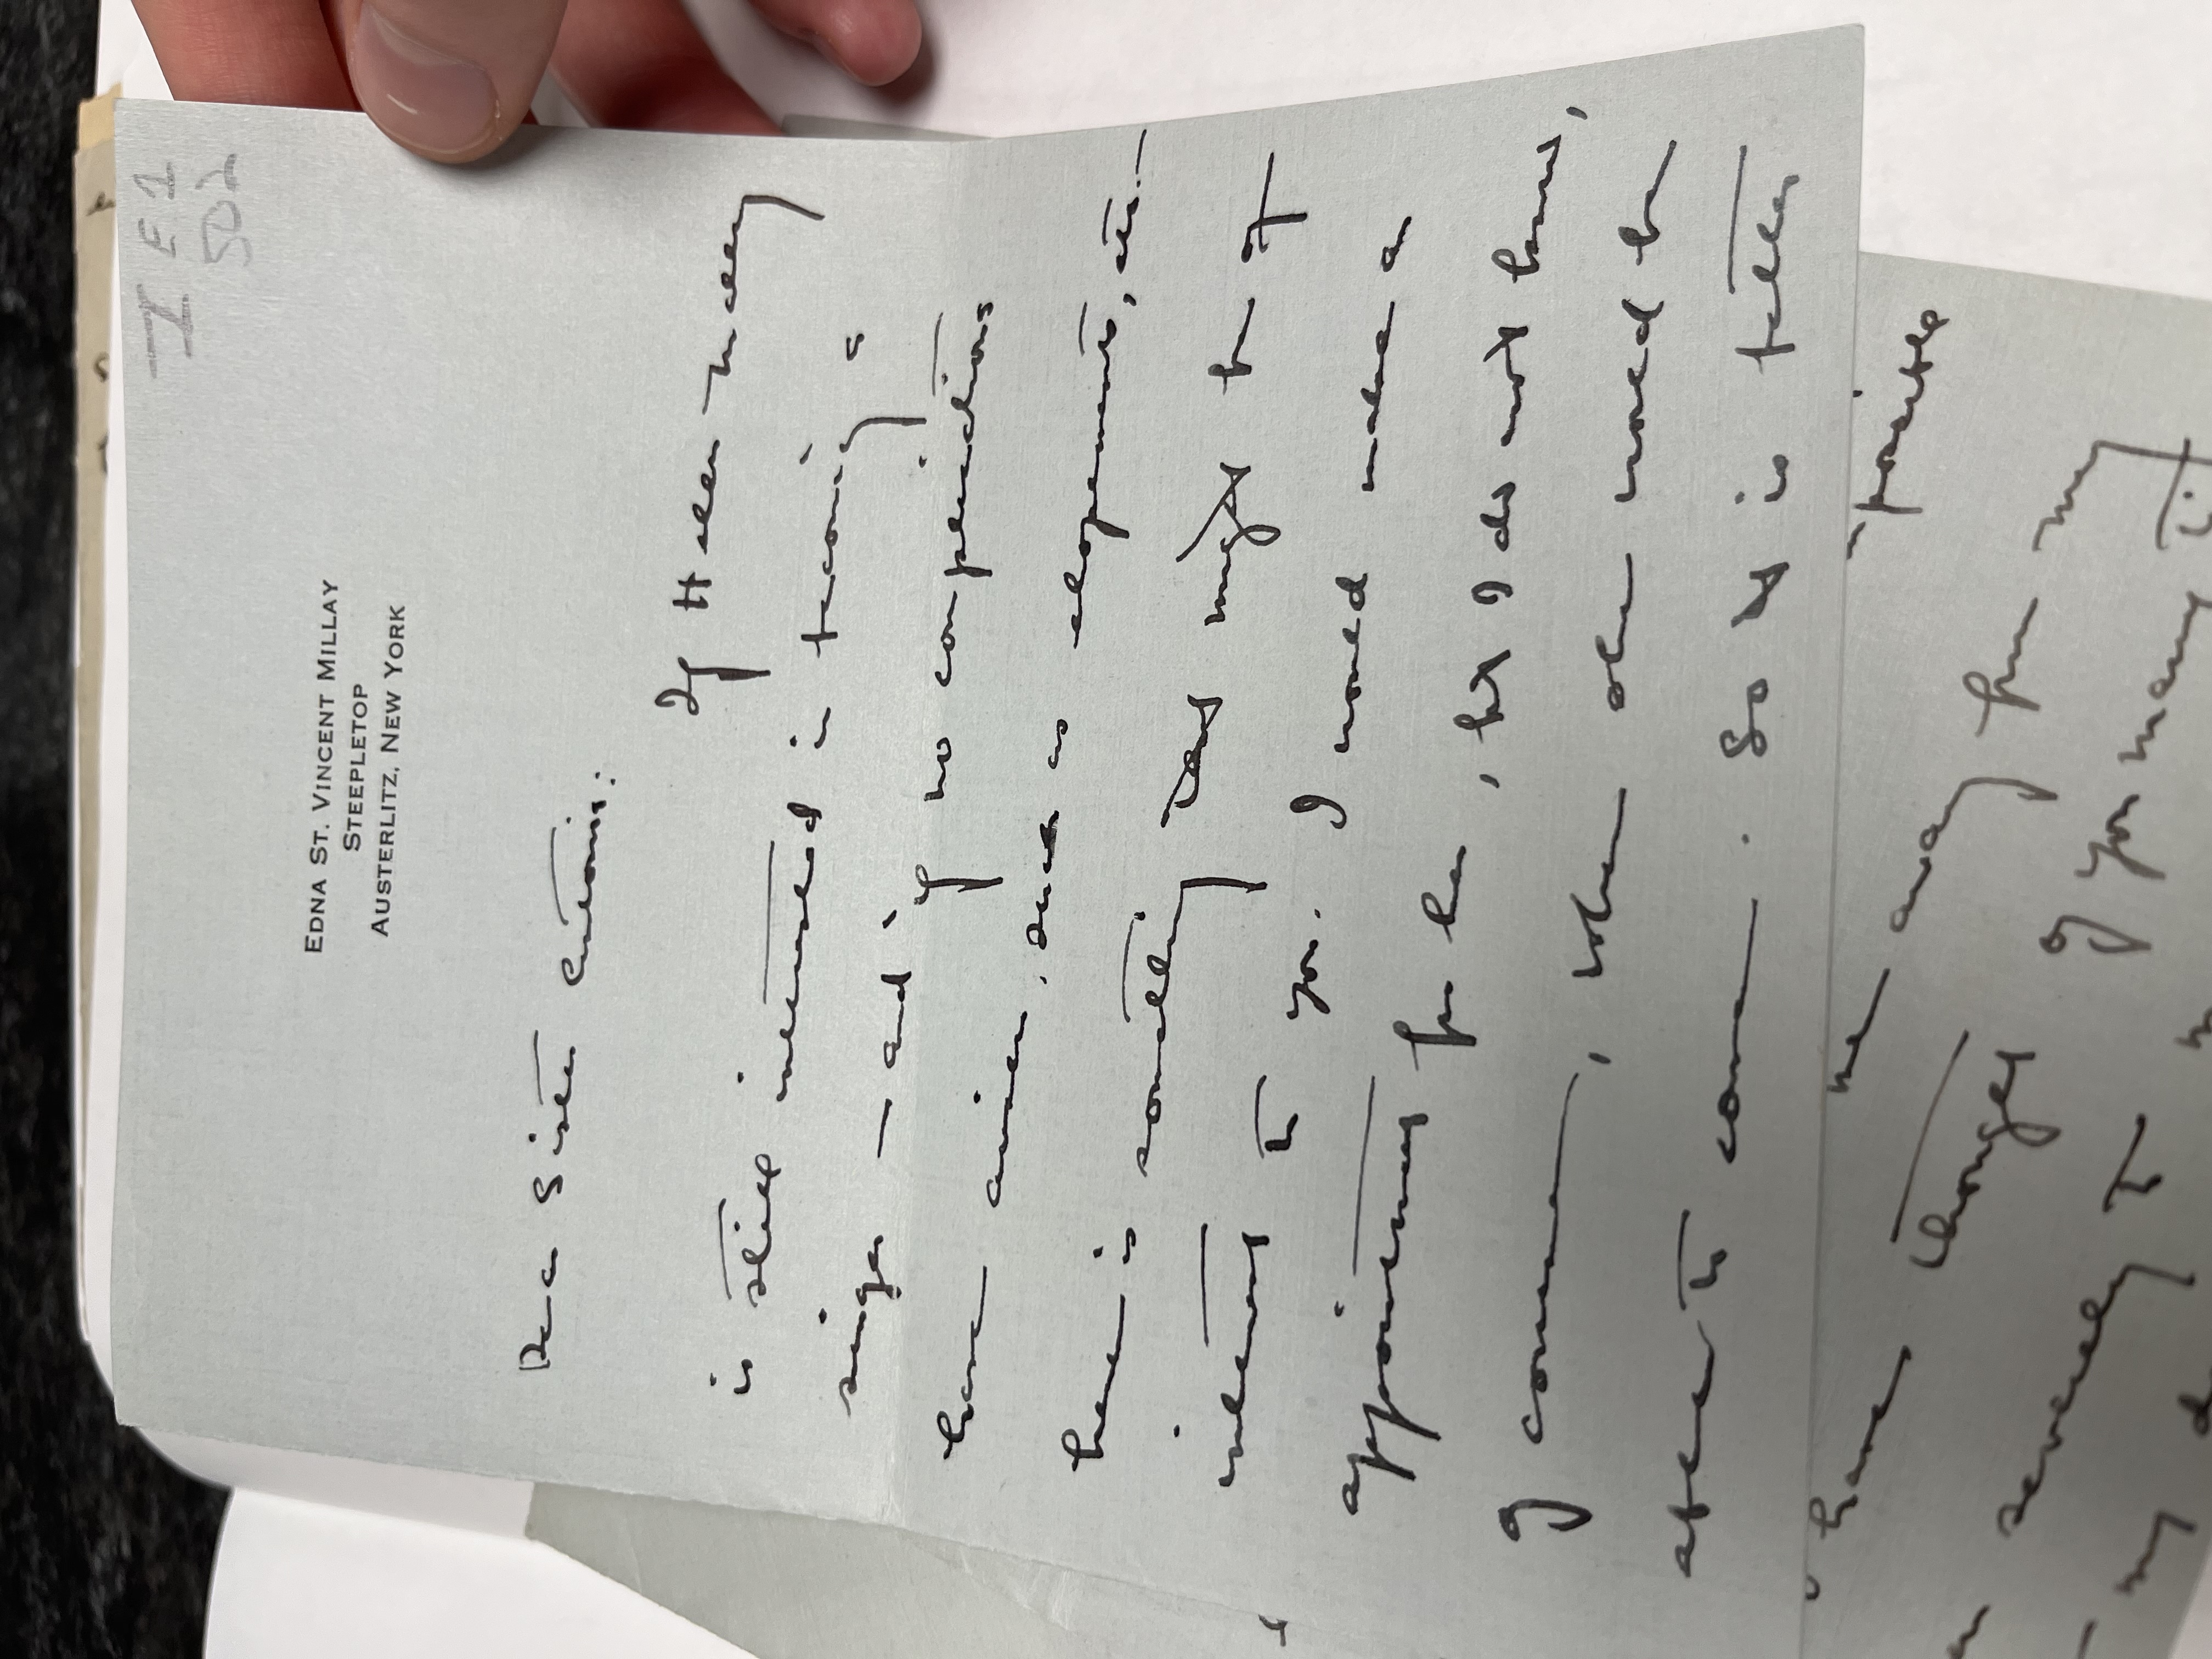 I E 1
502
EDNA ST. VINCENT MILLAY
STEEPLETOP
AUSTERLITZ, NEW YORK
Dear Sister Antonia:
If Helen
is still interested in becoming a
singer – and if no complications
have arisen, such as elopements, etc. –
here is something that might be of
interest to you. I would make an
appointment for her, but I do not know,
of course, when she would be
able to come. So it is better
possible
me away from my
have thought of you many ti
severely to m
my d